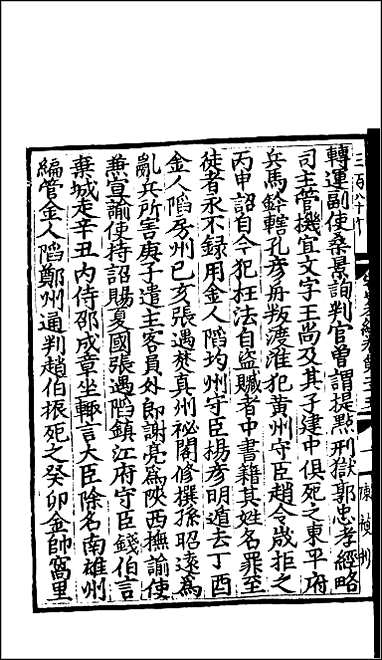 轉運副使桑景詢判官曾謂提點刑獄郭忠孝經略
司主管機宜文字王尚及其子建中俱死之東平府
兵馬鈐轄孔彥舟叛渡淮犯黃州守臣趙令𡷫拒之
丙申詔自今犯枉法自盜贓者中書籍其姓名罪至
徒者永不錄用金人䧟均州守臣揚彥明遁去丁酉
金人䧟房州已亥張遇焚真州祕閣修撰孫昭遠為
亂兵所害庚子遣主客員外郎謝亮為陝西撫諭使
兼宣諭使持詔賜夏國張遇䧟鎮江府守臣錢伯言
棄城走辛丑內侍邵成章坐輙言大臣除名南雄州
編管金人䧟鄭州通判趙伯振死之癸卯金帥窩里